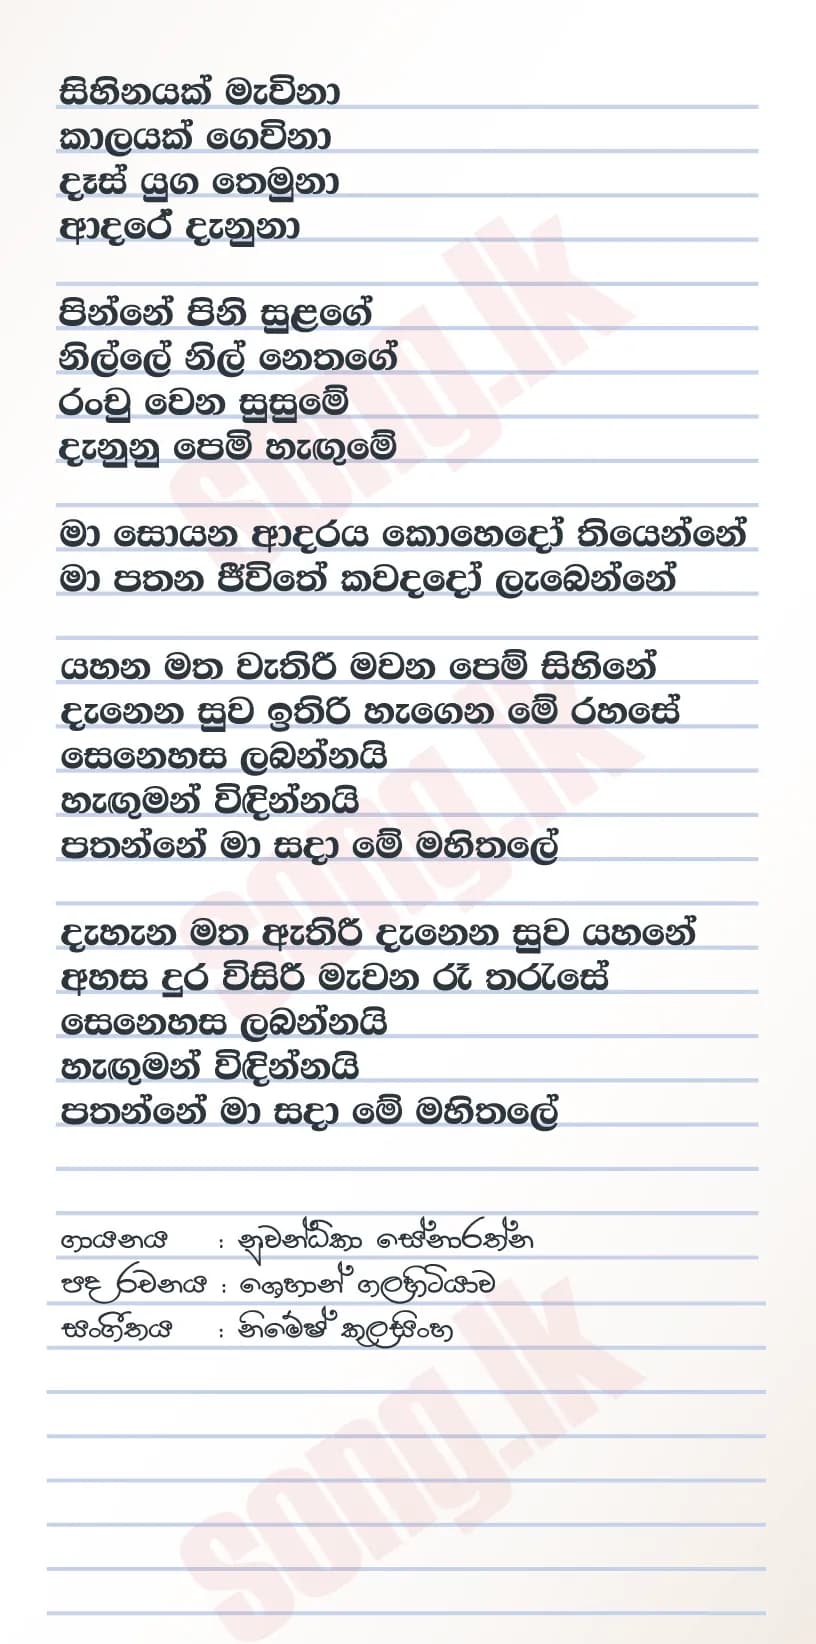 සිහිනයක් මැව්නා
කාලයක් ගෙවිනා
දෑස් යුග තෙමුනා
ආදරේ දැනුනා
පින්නේ පිනි සුළගේ
නිල්ලේ නිල් නෙතගේ
රංචු වෙන සුසුමේ
දැනුනු පෙමි හැඟුමේ
මා සොයන ආදරය කොහෙදෝ තියෙන්නේ
මා පතන ජීවිතේ කවදදෝ ලැබෙන්නේ
යහන මත වැතිරී මවන පෙම් සිහිනේ
දැනෙන සුව ඉතිරි හැගෙන මේ රහසේ
සෙනෙහස ලබන්නයි
හැඟුමන් විඳින්නයි
පතන්නේ මා සදා මේ මහිතලේ
දැහැන මත ඇතිරී දැනෙන සුව යහනේ
අහස දුර විසිරී මැවන රෑ තරැසේ
සෙනෙහස ලබන්නයි
හැඟුමන් විඳින්නයි
පතන්නේ මා සදා මේ මහිතලේ
ගායනය : නුවන්ධිකා සේනාරත්න
පද රචනය : ශෙහාන් ගලහිටියාව
සංගීතය : නිමේෂ් කුලසිංහ
song.lk
song.lk
song.lk